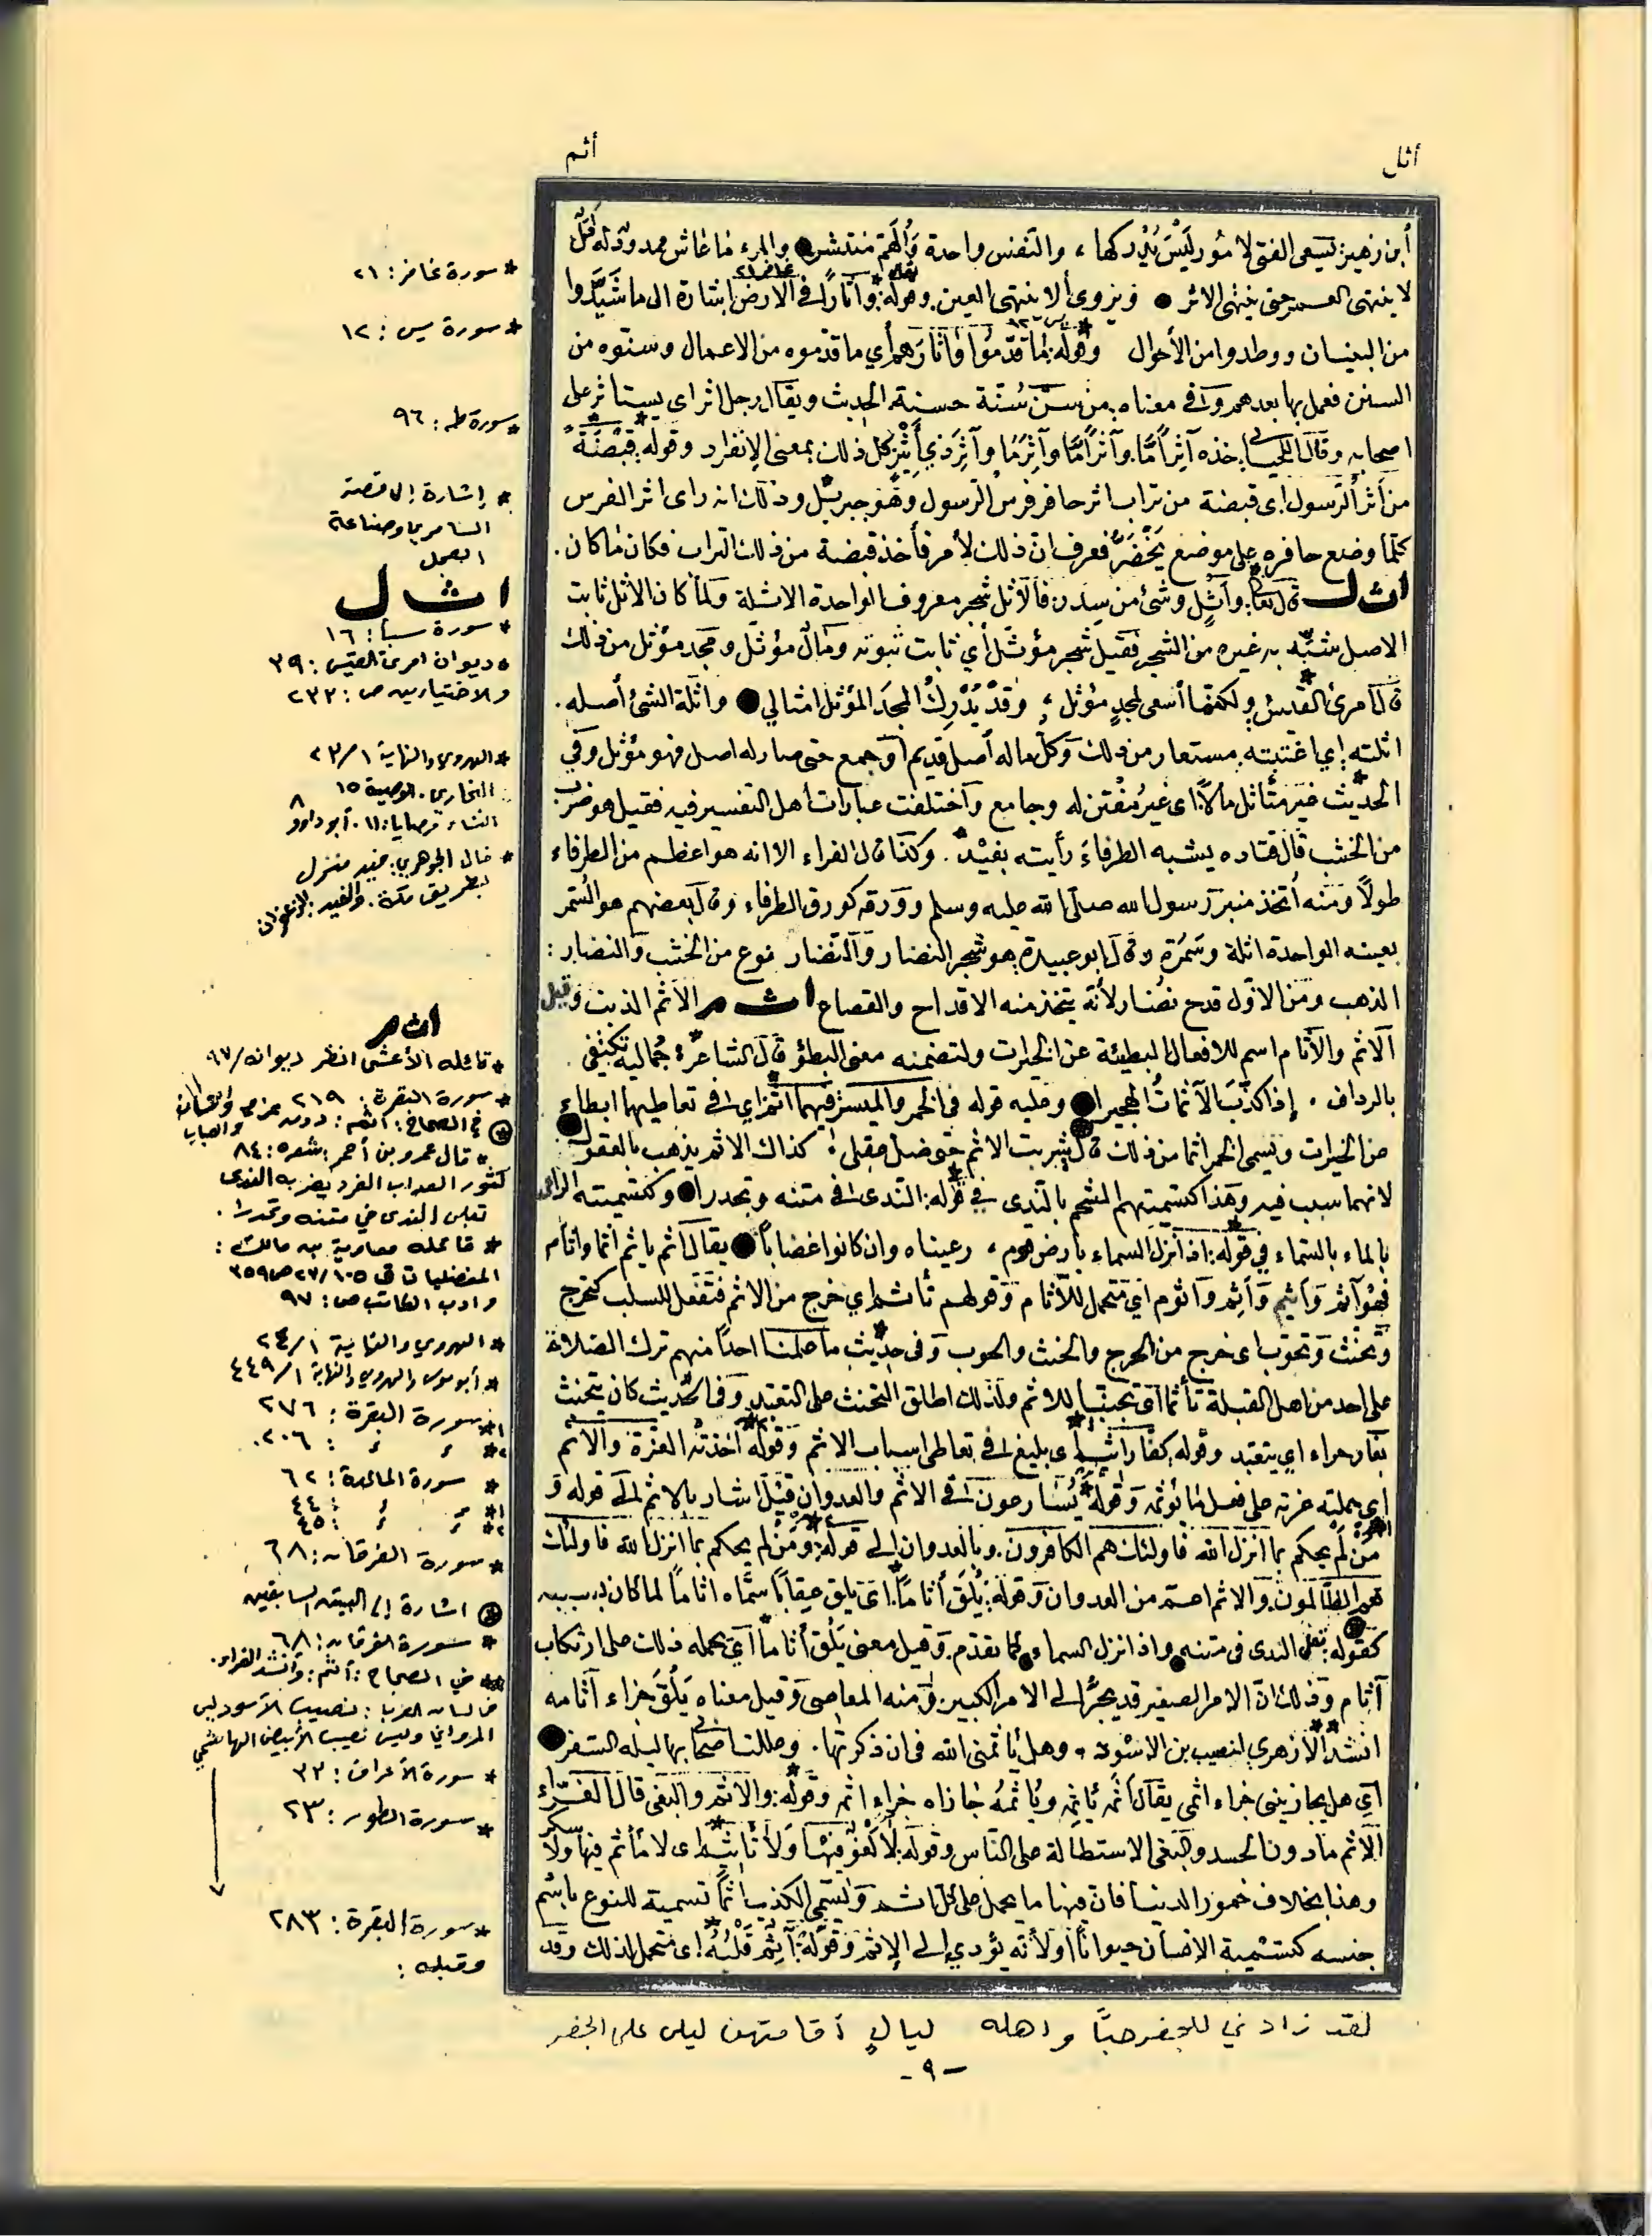 أثل
أثم
أبن زهير: يسعى الفتى لأمور ليس يدركها ، والنفس واحدة والهم منتشر ● والمرء ما عاش ممدود له أمل
لا ينتهى العمر حتى ينتهى الاثر ● ويروى ألا ينتهى العين. وقوله: وآثارا فى الارض إشارة الى ما شيدوا
من البنيان ووطدوا من الأحوال وقوله: ما قدموا وآثارهم أي ما قدموه من الاعمال وسنوه من
السنن فعمل بها بعدهم وفى معناه. من سن سنة حسنة. الحديث ويقال رجل اثر اى يستاثر على
اصحابه وقال اللحياني. خذه آثرا ما. وآثرا ما وآثر ما وآثر ذي أثير كل ذلك بمعنى الانفراد وقوله: قبضة
من أثر الرسول اى قبضة من تراب اثر حافر فرس الرسول وهو جبرئيل وذلك انه راى اثر الفرس
كلما وضع حافره على موضع يخضر فعرف ان ذلك لأمر فأخذ قبضة من ذلك التراب فكان ما كان.
اثل قال تعالى: وأثل وشئ من سدر: فالأثل شجر معروف الواحدة الاثلة ولما كان الاثل ثابت
الاصل شبه به غيره من الشجر فقيل شجر مؤثل أي ثابت ثبوته ومال مؤثل ومجد مؤثل من ذلك
قال امرئ القيس: ولكنما أسعى لمجد مؤثل ؛ وقد يدرك المجد المؤثل امثالي ● واثلة الشئ أصله.
اثلته. اي اغتبته. مستعار من ذلك وكل ما له أصل قديم أو جمع حتى صار له اصل فهو مؤثل وفي
الحديث غير متأثل مالا. اى غير مقتن له وجامع واختلفت عبارات اهل التفسير فيه فقيل هو ضرب
من الخشب قال قتاده يشبه الطرفاء رأيته بفيد. وكذا قال الفراء الا انه هو اعظم من الطرفاء
طولا ومنه أتخذ منبر رسول الله صلى الله عليه وسلم وورقه كورق الطرفاء وقال بعضهم هو السمر
بعينه الواحدة اثلة وسمرة وقال ابو عبيدة. هو شجر النضار والنضار نوع من الخشب والنضار:
الذهب ومن الاول قدح نضار لأنه يتخذ منه الاقداح والقصاع اثم الاثم الذنب وقيل
الاثم والأثام اسم للافعال البطيئة عن الخيرات ولتضمنه معنى البطؤ قال الشاعر: جمالية تكتفي
بالرداف . إذا كذب الآثمات الهجيرا ● وعليه قوله فى الخمر والميسر فيهما اثم اي فى تعاطيهما ابطاء
عن الخيرات وتسمى الخمر اثما من ذلك قال: شربت الاثم حتى ضل عقلى ؛ كذاك الاثم يذهب بالعقول
لانها سبب فيه وهذا كتسميتهم الشحم بالندى فى قوله: الندى فى متنه وتحدرا ● وكتسميته الراعى
بالماء بالسماء في قوله: اذا نزل السماء بارض قوم ، رعيناه وان كانوا غضابا ● يقال أثم يأثم اثما واثام
فهو آثم وأثيم وأثم وأثوم أي متحمل للآثام وقولهم تأثم اي خرج من الاثم فتفعل للسلب كتحرج
وتحنث وتحوب اى خرج من الحرج والحنث والحوب وفى حديث ما علمنا احدا منهم ترك الصلاة
على احد من اهل القبلة تأثما اى تجنبا للاثم ولذلك اطلق التحنث على التعبد وفى الحديث كان يتحنث
بغار حراء اي يتعبد وقوله كفار اثيم اى بليغ فى تعاطى اسباب الاثم وقوله: اخذته العزة والاثم
اي حملته عزته على فعل ما يؤثمه وقوله يسارعون فى الاثم والعدوان قيل اشار بالاثم الى قوله و
من لم يحكم بما انزل الله فاولئك هم الكافرون. وبالعدوان الى قوله: ومن لم يحكم بما انزل الله فاولئك
هم الظالمون. والاثم اعم من العدوان وقوله: يلق أثاما. اى يلق عقابا سماه اثاما لما كان بسببه
كقوله: تعلى الندى فى متنه واذا نزل السماء كما تقدم. وقيل معنى يلق أثاما أي يحمله ذلك على ارتكاب
آثام وذلك ان الامر الصغير قد يجر الى الامر الكبير. ومنه المعاصى وقيل معناه يلق جزاء آثامه
انشد الأزهري لنصيب بن الاسود. وهل يأثمنى الله فى ان ذكرتها. وعللت اصحابي بها ليله السفر ●
أي هل يجازيني جزاء اثمى يقال أثمه يأثمه ويأثمه جازاه جزاء اثمه وقوله: والاثم والبغى قال الفراء
الاثم ما دون الحد والبغى الاستطالة على الناس وقوله: لا لغو فيها ولا تأثيم اى لا مأثم فيها ولا سكر
وهذا بخلاف خمور الدنيا فان فيها ما يحمل على كل اثم وتسمى الكذب اثما تسمية للنوع باسم
جنسه كتسمية الانسان حيوانا أو لأنه يؤدي الى الإثم وقوله: آثم قلبه: اى متحمل لذلك وقد
* سورة غافر: ٢١
* سورة يس: ١٢
* سورة طه: ٩٦
* إشارة إلى قصة
السامري وصناعة
العجل
اثل
* سورة سبأ: ١٦
* ديوان امرئ القيس: ٣٩
والاختيارين ص: ٢٣٢
* الهروي والنهاية ١/ ٢٣
البخاري. الوصية ١٥
النساء وصايا: ١١. أبو داود ٨
* قال الجوهري: فيد منزل
بطريق مكة. والفيد: الزعفران
اثم
* قائله الأعشى انظر ديوانه/ ٩٧
* سورة البقرة: ٢١٩
* قال عمرو بن أحمر: شعره: ٨٤
كثور العداب الفرد يضربه الندى
تعلى الندى في متنه وتحدرا.
* قائله معاوية بن مالك:
المفضليات ق ١٠٥/ ٢٧ ص ٣٥٩
وادب الكاتب ص: ٩٧
* الهروي والنهاية ١/ ٢٤
* أبو موسى والهروي والنهاية ١/ ٤٤٩
*١ سورة البقرة: ٢٧٦
*٢ ء ء : ٢٠٦.
* سورة المائدة: ٦٢
*١ ء ء : ٤٤
*٢ ء ء : ٤٥
* سورة الفرقان: ٦٨
* اشارة إلى البيتين السابقين
* سورة الفرقان: ٦٨
** في الصحاح: أثم: وأنشد الفراء.
لنصيب الأسود بن
المرواني وليس نصيب الأبيض الهاشمي
* سورة الأعراف: ٣٣
* سورة الطور: ٢٣
* سورة البقرة: ٢٨٣
وقبله:
لقد زادني للجفر حبا واهله ليال أقامتهن ليلى على الجفر
- ٩ -